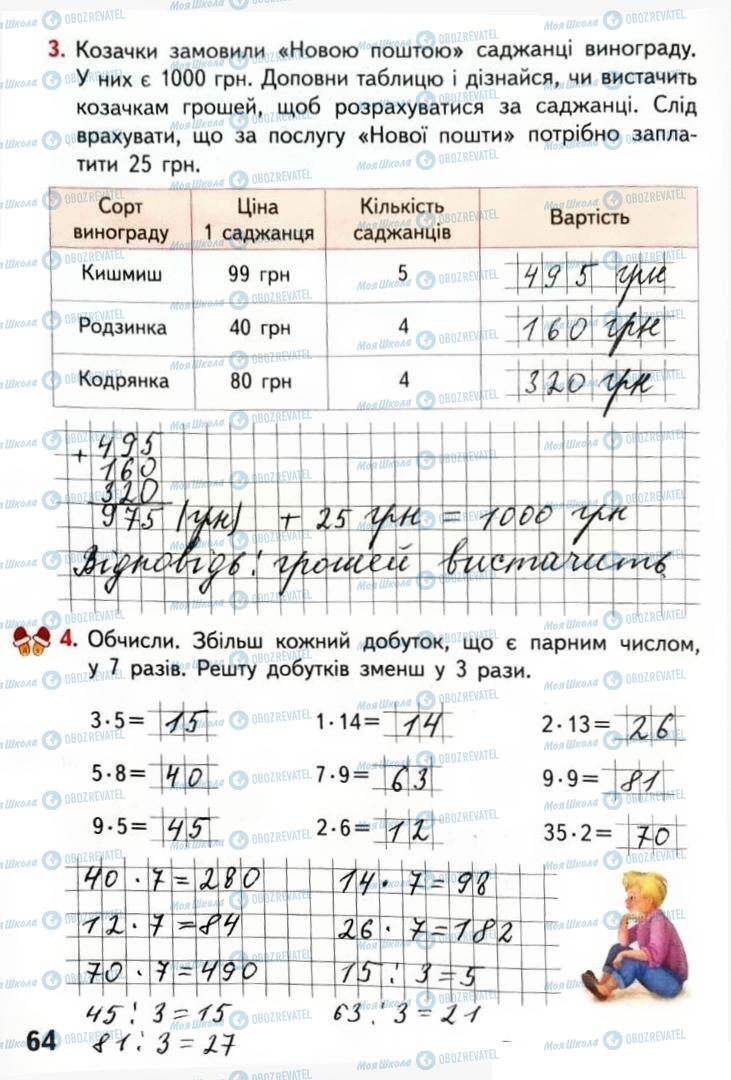 3. Козачки замовили «Новою поштою» саджанці винограду.
У них є 1000 грн. Доповни таблицю і дізнайся, чи вистачить
козачкам грошей, щоб розрахуватися за саджанці. Слід
врахувати, що за послугу «Нової пошти» потрібно запла-
тити 25 грн.
Сорт винограду Ціна 1 саджанця Кількість саджанців Вартість
Кишмиш 99 грн 5 495 грн
Родзинка 40 грн 4 160 грн
Кодрянка 80 грн 4 320 грн
+ 495
160
320
975 (грн) + 25 грн = 1000 грн
Відповідь: грошей вистачить
4. Обчисли. Збільш кожний добуток, що є парним числом,
у 7 разів. Решту добутків зменш у 3 рази.
3·5= 15 1·14= 14 2·13= 26
5·8= 40 7·9= 63 9·9= 81
9·5= 45 2·6= 12 35·2= 70
40·7=280 14·7=98
12·7=84 26·7=182
70·7=490 15:3=5
45:3=15 63:3=21
81:3=27
64
МояШкола OBOZREVATEL